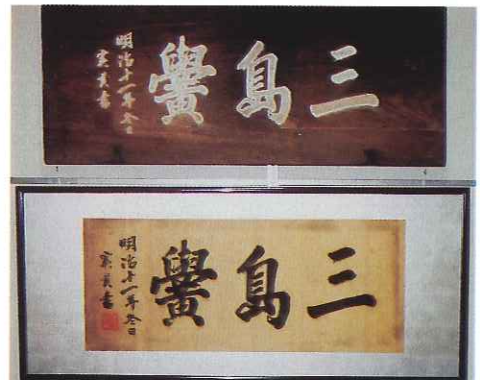 三島黌
明治十一年冬日
實美書
三島黌
明治十一年冬日
實美書